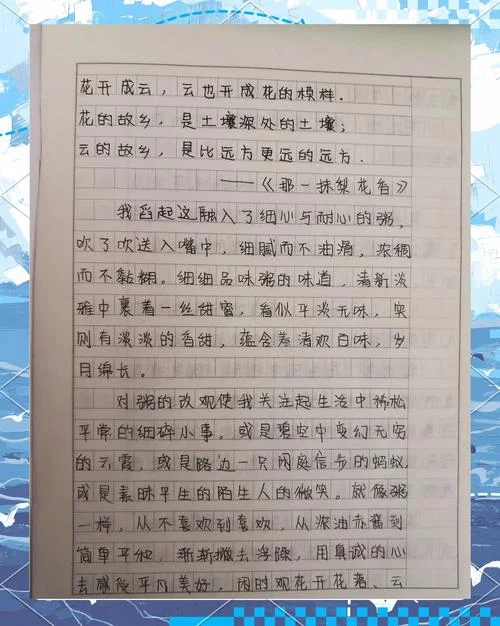 花开成云，云也开成花的模样.
花的故乡，是土壤深处的土壤；
云的故乡，是比远方更远的远方.
——《那一抹梨花香》
我舀起这融入了细心与耐心的粥，
吹了吹送入嘴中，细腻而不油滑，浓稠
而不黏糊。细细品味粥的味道，清新淡
雅中裹着一丝甜蜜，看似平淡无味，实
则有淡淡的香甜，蕴含着清欢百味，岁
月绵长。
对粥的改观使我关注起生活中稀松
平常的细碎小事。或是碧空中变幻无穷
的云霞，或是路边一只闲庭信步的蚂蚁，
或是素昧平生的陌生人的微笑。就像粥
一样，从不喜欢到喜欢，从浓油赤酱到
简单平和，渐渐撇去浮躁，用真诚的心
去感受平凡美好，闲时观花开花落、云